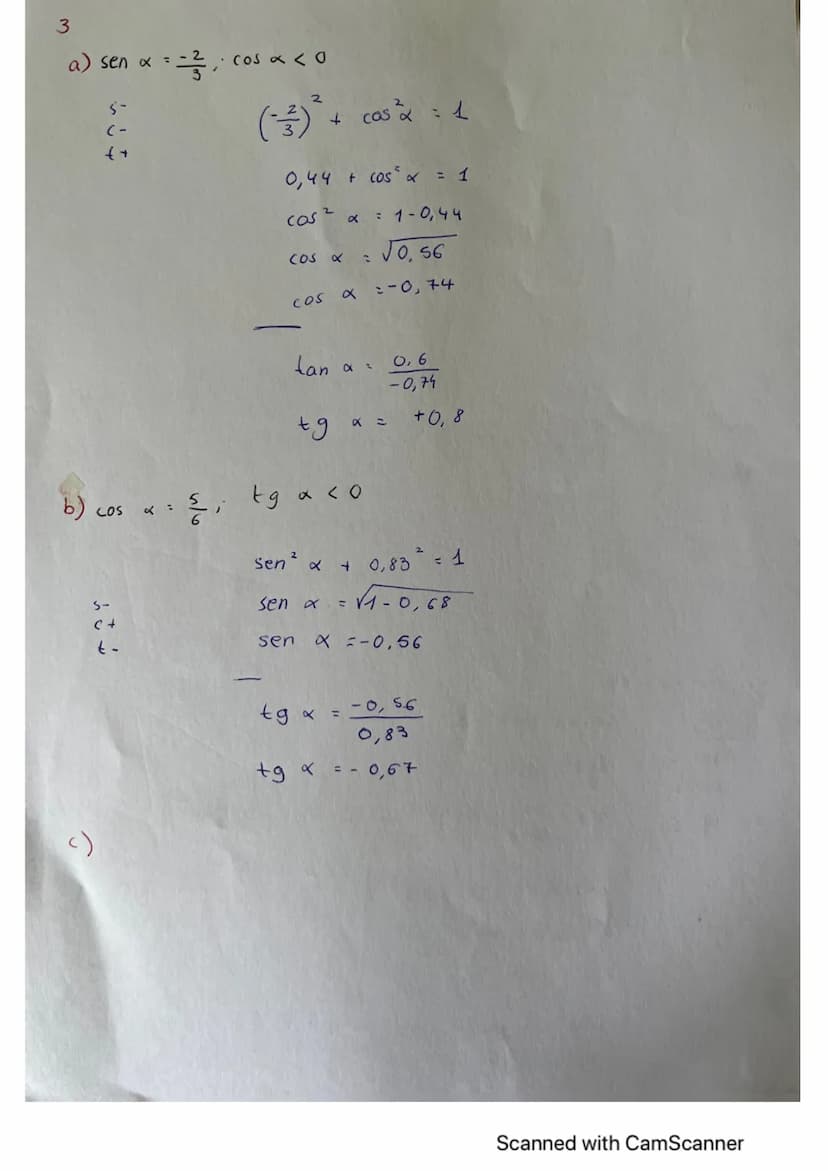 3
a) sen α = -2/3 ; cos α < 0
s-
c-
t+
(-2/3)² + cos²α = 1
0,44 + cos² α = 1
cos² α = 1-0,44
cos α = √0,56
cos α =-0,74
tan α = 0,6/-0,74
tg α = +0,8
b) cos α = 5/6 ; tg α < 0
s-
c+
t-
sen² α + 0,83² = 1
sen α = √1-0,68
sen α =-0,56
tg α = -0,56/0,83
tg α = - 0,67
c)
Scanned with CamScanner